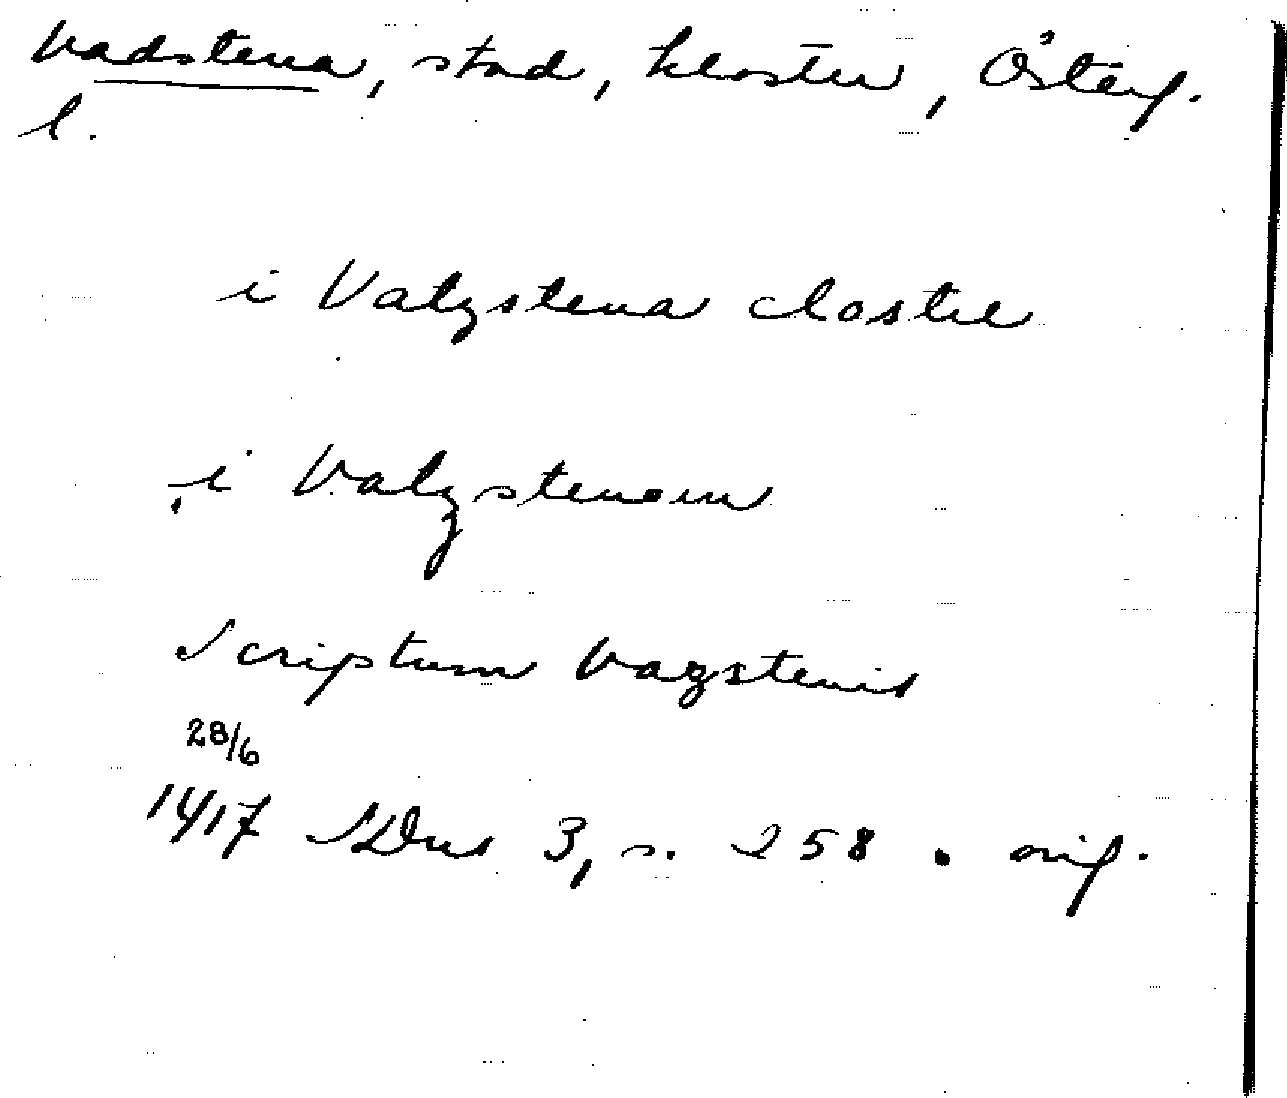 Vadstena, stad, kloster, Österg.
l.
i Vatzstena clostre
i Vatzstenom
Scriptum Vazstenis
28/6
1417 SDns 3, s. 258 . orig.